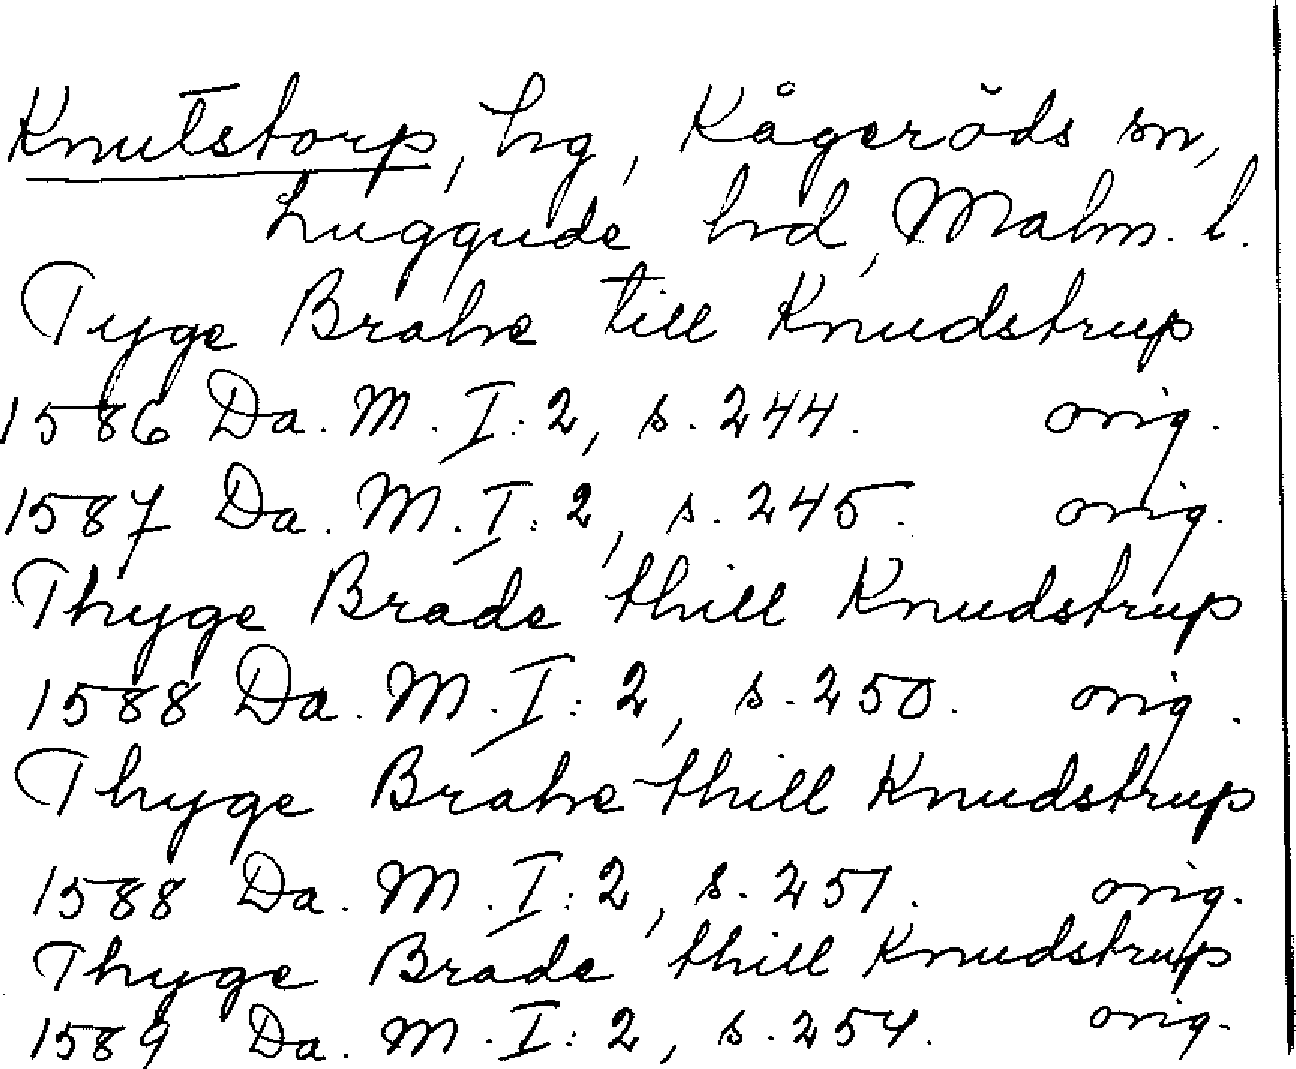 Knutstorp, hg, Kågeröds sn,
Luggude hd, Malm. l.
Tyge Brahe till Knudstrup
1586 Da. M. I:2, s. 244. orig.
1587 Da. M. I:2, s. 245. orig.
Thyge Brade thill Knudstrup
1588 Da. M. I:2, s. 250. orig.
Thyge Brahe thill Knudstrup
1588 Da. M. I:2, s. 251. orig.
Thyge Brade thill Knudstrup
1589 Da. M. I:2, s. 254. orig.